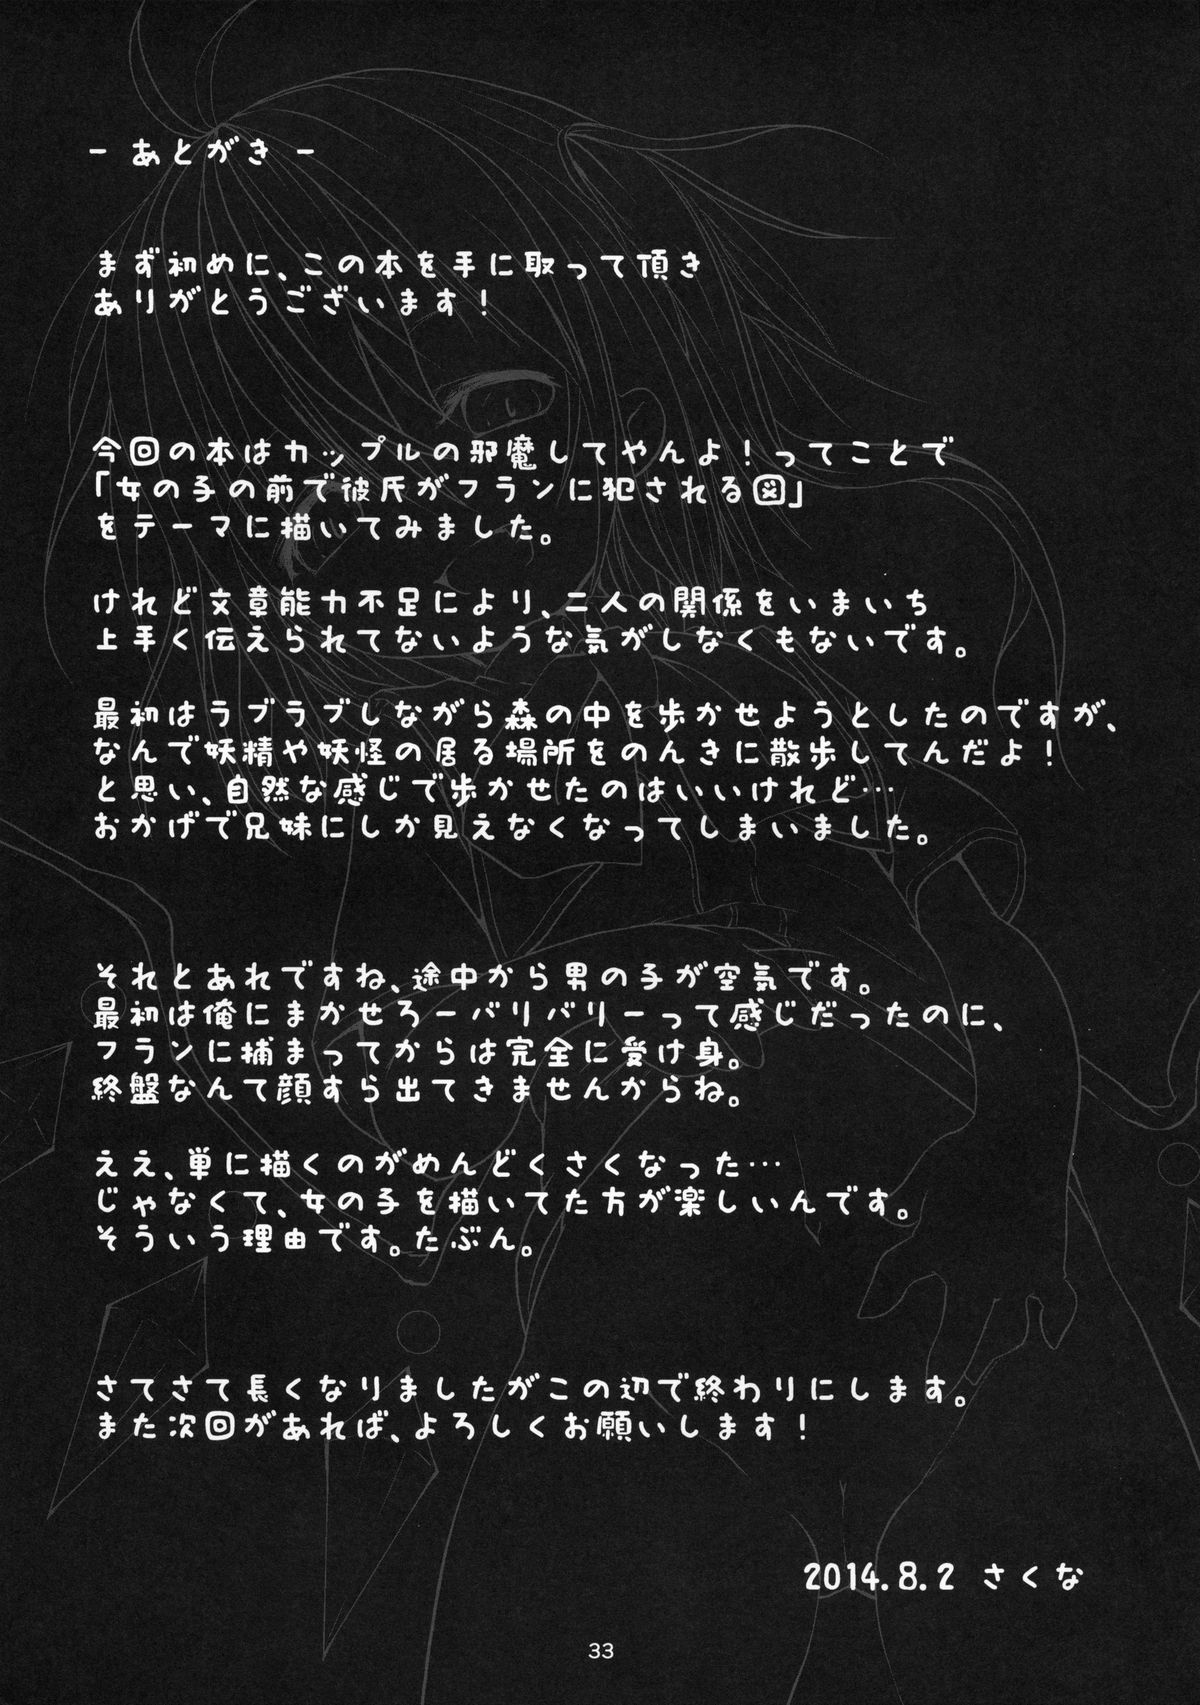 - あとがき -
まず初めに、この本を手に取って頂き
ありがとうございます！
今回の本はカップルの邪魔してやんよ！ってことで
「女の子の前で彼氏がフランに犯される図」
をテーマに描いてみました。
けれど文章能力不足により、二人の関係をいまいち
上手く伝えられてないような気がしなくもないです。
最初はラブラブしながら森の中を歩かせようとしたのですが、
なんで妖精や妖怪の居る場所をのんきに散歩してんだよ！
と思い、自然な感じで歩かせたのはいいけれど…
おかげで兄妹にしか見えなくなってしまいました。
それとあれですね、途中から男の子が空気です。
最初は俺にまかせろーバリバリーって感じだったのに、
フランに捕まってからは完全に受け身。
終盤なんて顔すら出てきませんからね。
ええ、単に描くのがめんどくさくなった…
じゃなくて、女の子を描いてた方が楽しいんです。
そういう理由です。たぶん。
さてさて長くなりましたがこの辺で終わりにします。
また次回があれば、よろしくお願いします！
2014.8.2 さくな
33